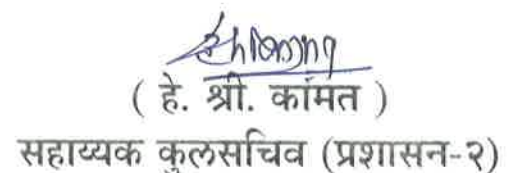 ( हे. श्री. कांमत )
सहाय्यक कुलसचिव (प्रशासन-२)